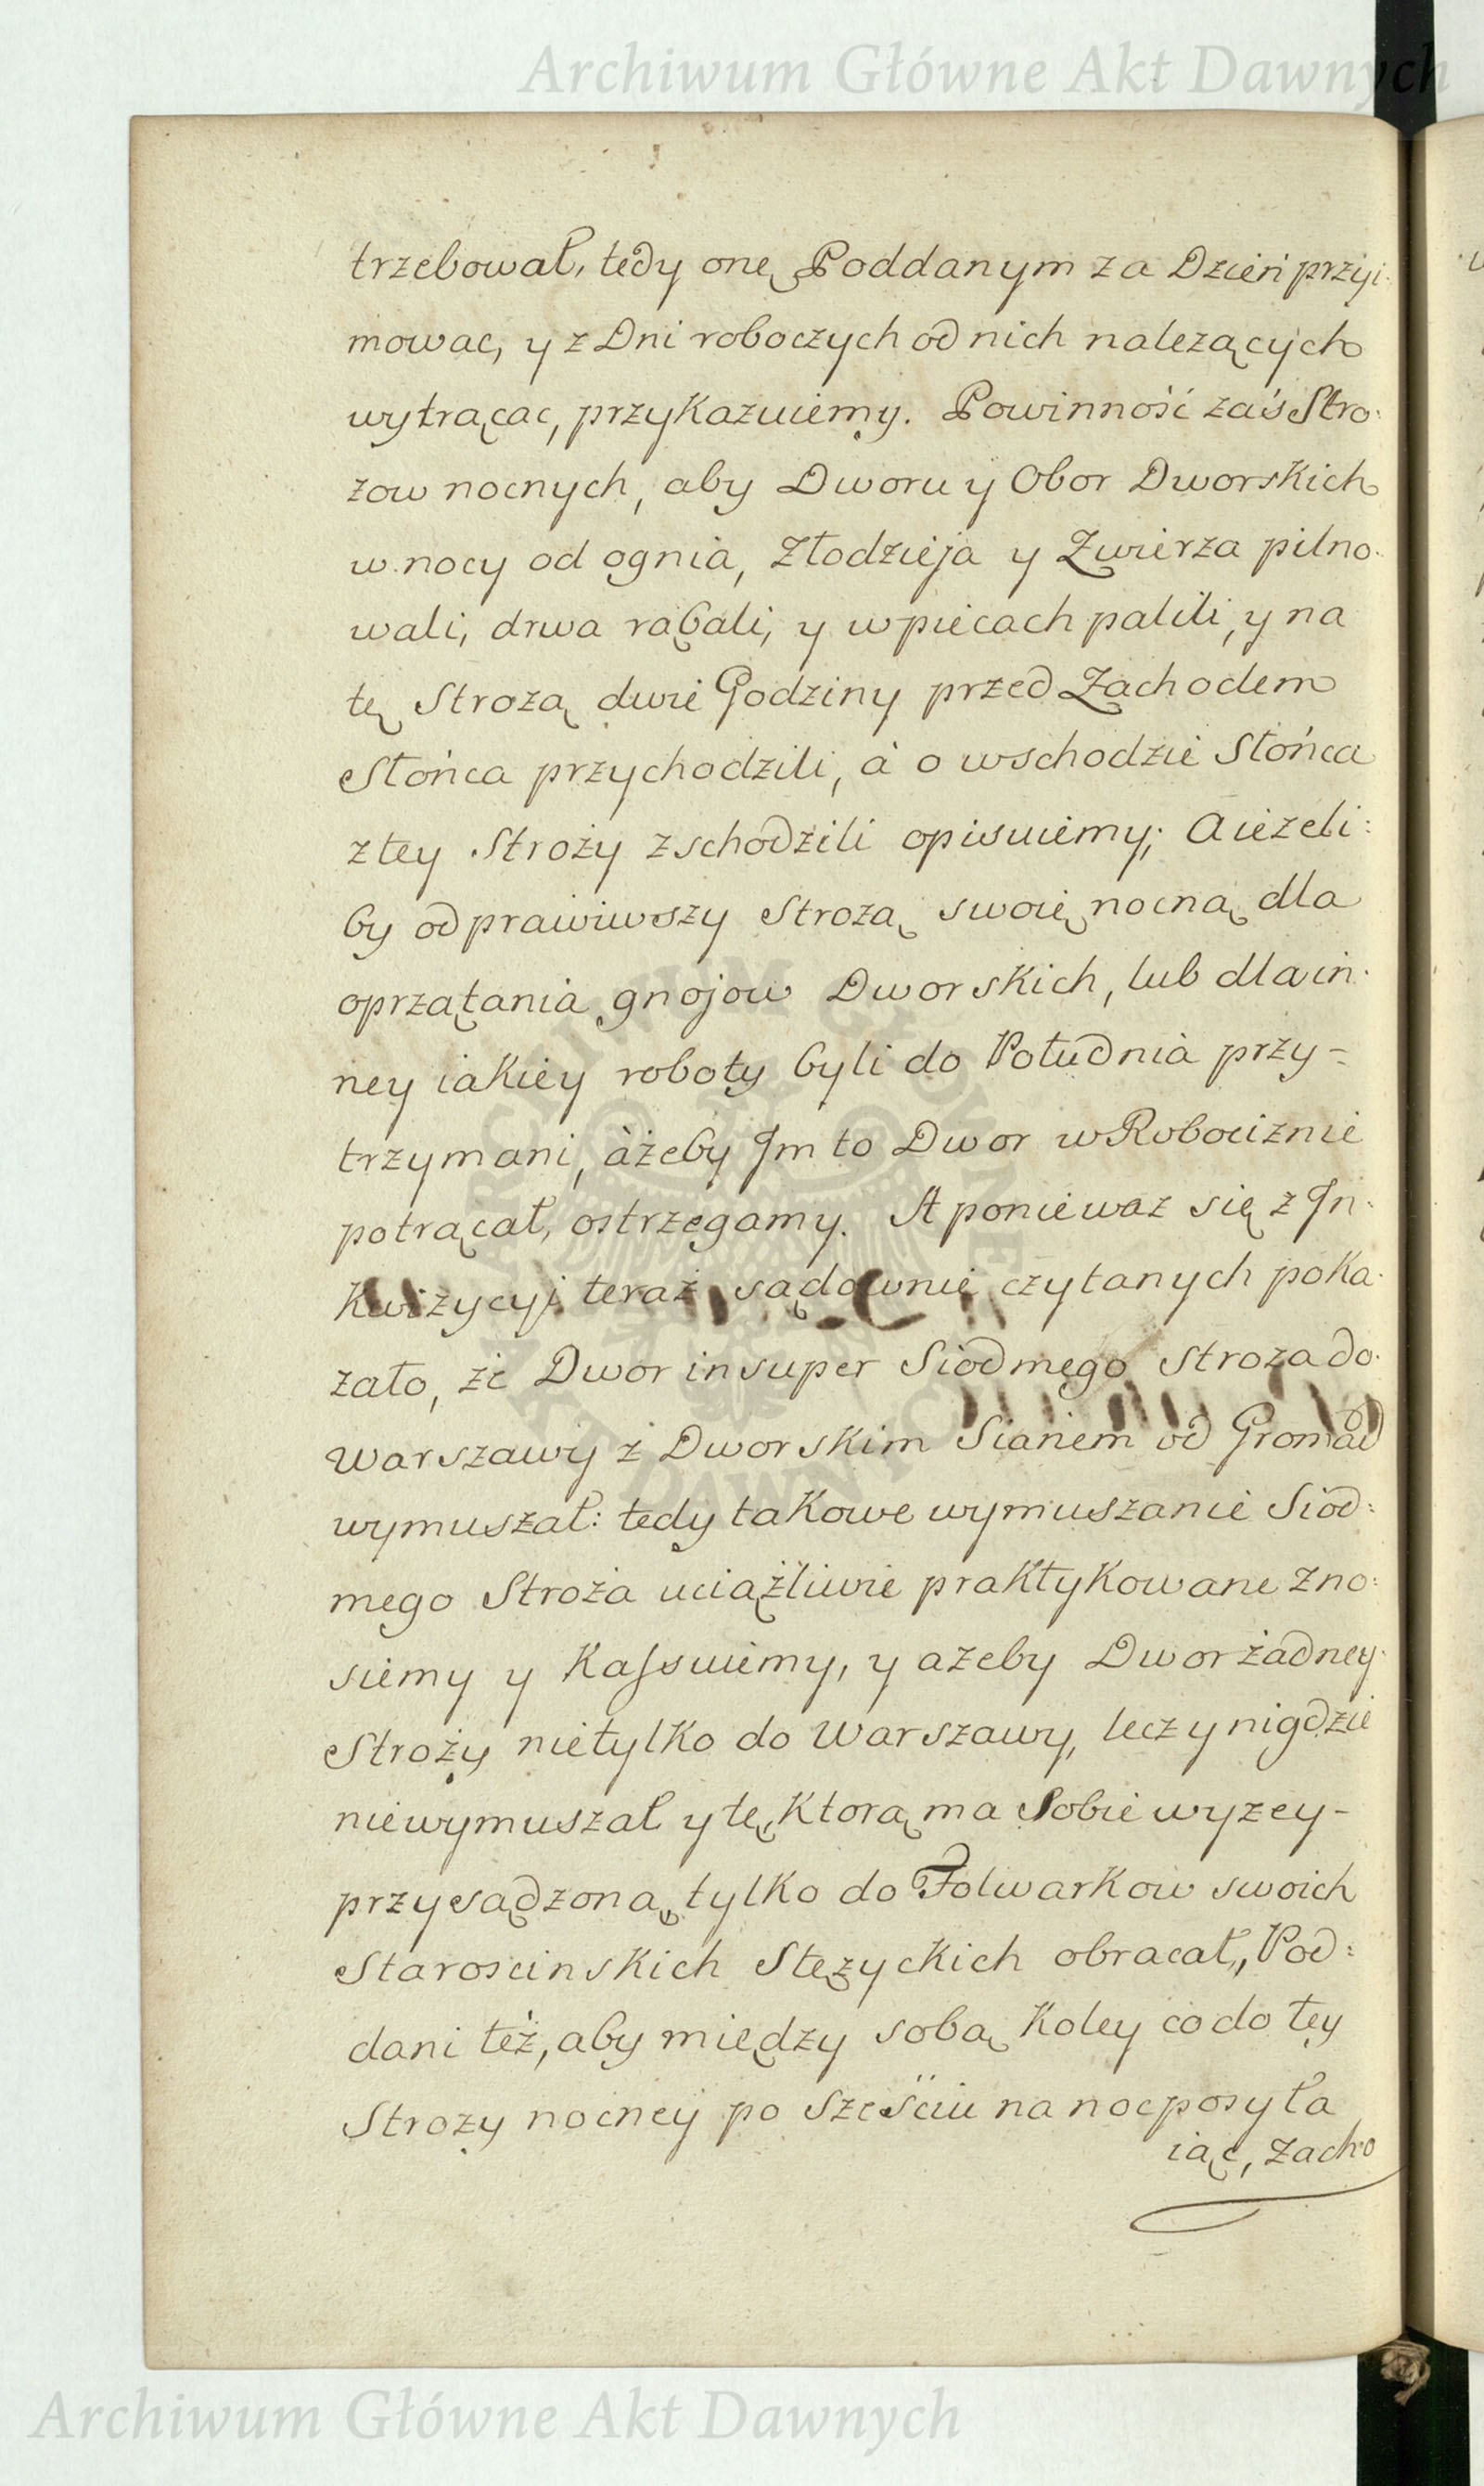 Archiwum Główne Akt Dawnych
trzebował, tedy onę Poddanym za Dzień przyi-
mowac, y z Dni roboczych od nich nalezących
wytrącac, przykazuiemy. Powinność zaś Stro-
zow nocnych, aby Dworu y Obor Dworskich
w nocy od ognia, Złodzieja y Zwierza pilno-
wali, drwa rąbali, y w piecach palili, y na
tę Strozą dwie Godziny przed Zachodem
Słońca przychodzili, à o wschodzie Słońca
z tey Stroży zschodzili opisuiemy; A ieżeli:
by odprawiwszy Strozą swoię nocną dla
oprzątania gnojow Dworskich, lub dla in-
ney iakiey roboty byli do Południa przy-
trzymani, àżeby Im to Dwor w Robociznie
potrącał, ostrzegamy. A poniewaz się z In-
kwizycyi teraz sądownie czytanych poka-
zało, że Dwor insuper Siodmego stroza do
Warszawy z Dworskim Sianem od Gromad
wymuszał: tedy takowe wymuszanie Siod:
mego Stroża uciążliwie praktykowane zno:
siemy y Kassuiemy, y azeby Dwor żadney
Stroży nietylko do Warszawy, lecz y nigdzie
niewymuszał y tę, ktorą ma Sobie wyzey-
przysądzoną, tylko do Folwarkow swoich
Staroscinskich Stężyckich obracał, Pod:
dani też, aby między sobą koley co do tey
Strozy nocney po sześciu na noc posyła
iąc, zacho
ARCHIWUM GŁÓWNE AKT DAWNYCH
Archiwum Główne Akt Dawnych